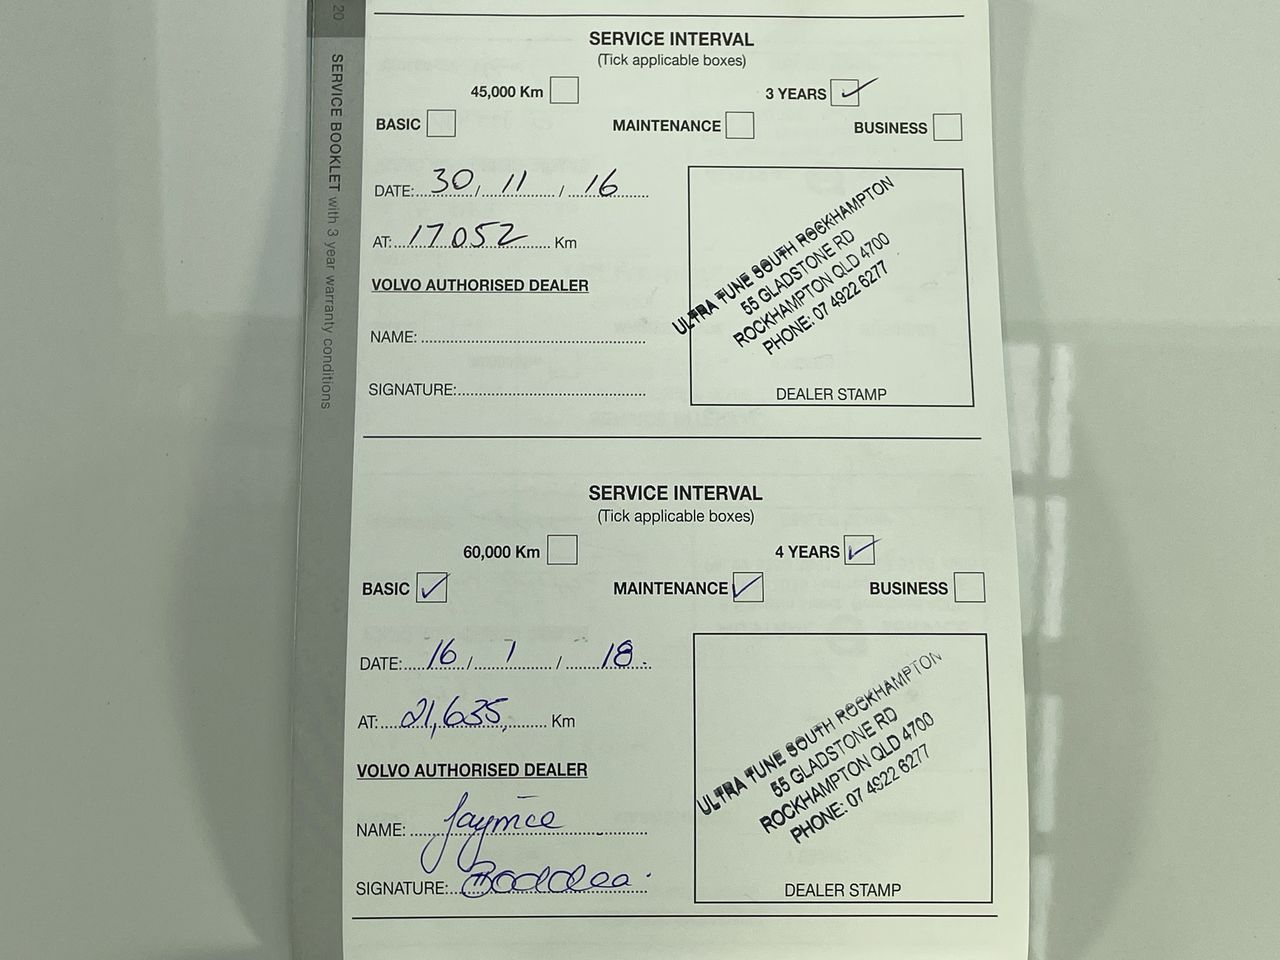 20
SERVICE BOOKLET with 3 year warranty conditions
SERVICE INTERVAL
(Tick applicable boxes)
45,000 Km 3 YEARS
BASIC MAINTENANCE BUSINESS
DATE: 30 / 11 / 16
AT: 17052 Km
VOLVO AUTHORISED DEALER
NAME:
SIGNATURE:
ULTRA TUNE SOUTH ROCKHAMPTON
55 GLADSTONE RD
ROCKHAMPTON QLD 4700
PHONE: 07 4922 6277
DEALER STAMP
SERVICE INTERVAL
(Tick applicable boxes)
60,000 Km 4 YEARS
BASIC MAINTENANCE BUSINESS
DATE: 16 / 1 / 18.
AT: 21,635 Km
VOLVO AUTHORISED DEALER
NAME:
SIGNATURE:
ULTRA TUNE SOUTH ROCKHAMPTON
55 GLADSTONE RD
ROCKHAMPTON QLD 4700
PHONE: 07 4922 6277
DEALER STAMP